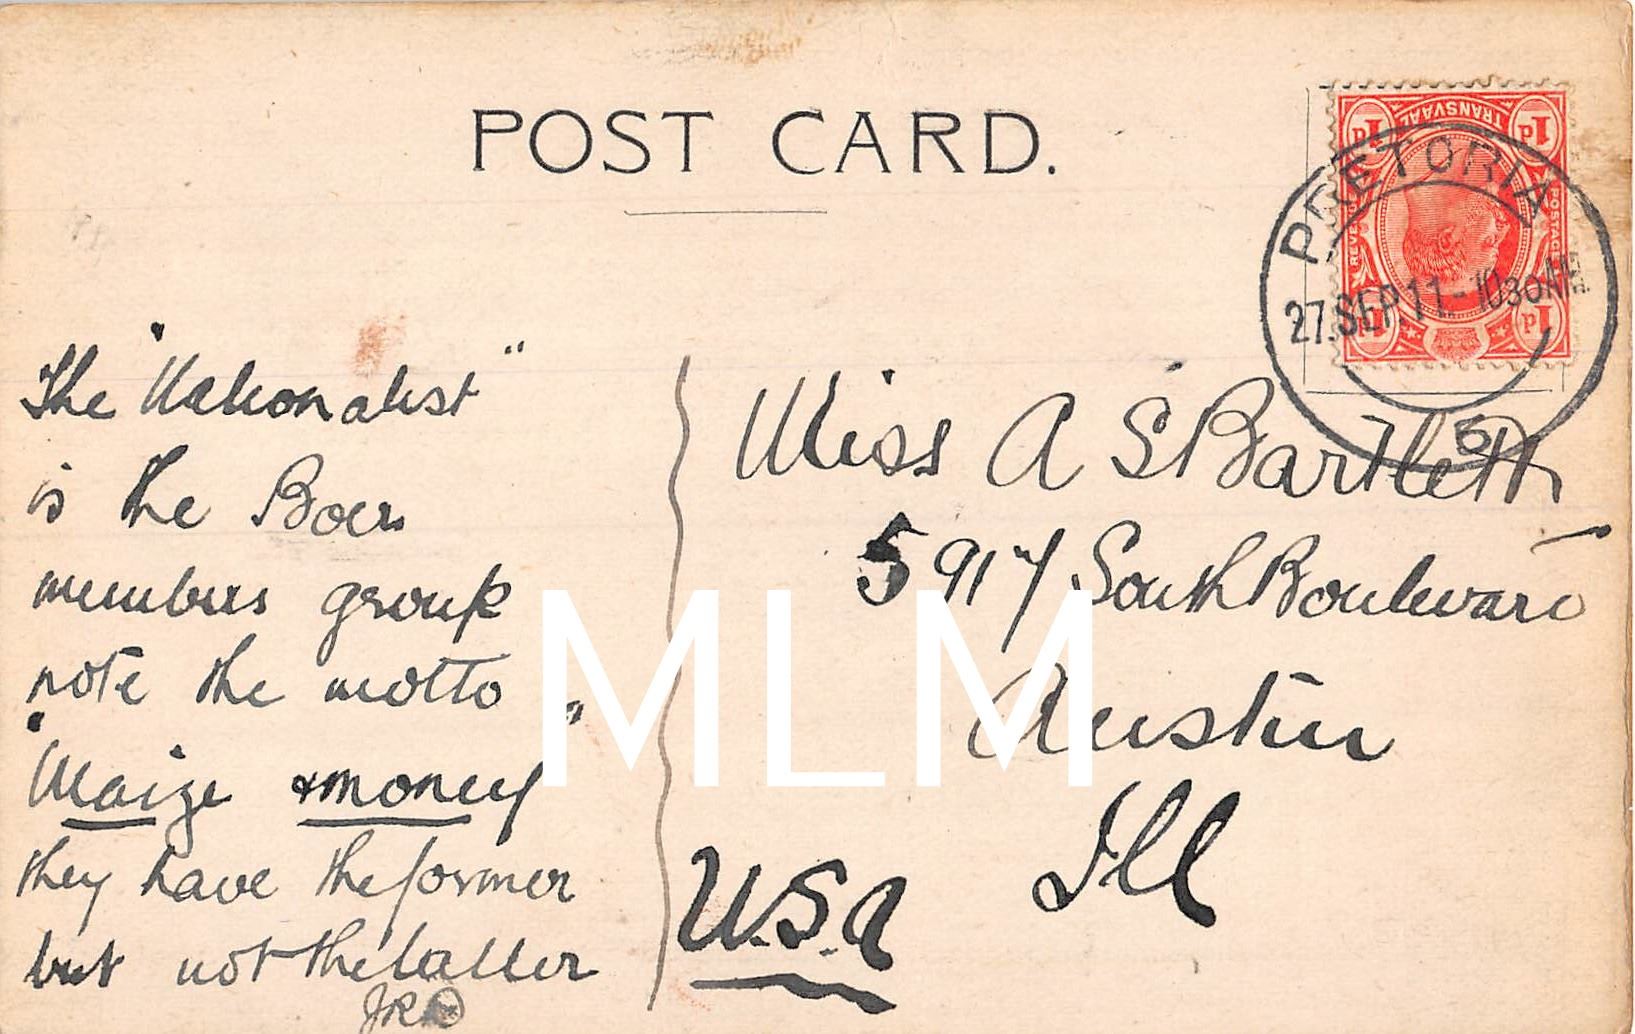 POST CARD.
TRANSVAAL
1d
1d
POSTAGE
REVENUE
1d
1d
PRETORIA
27.SEP.11-1030AM
5
The "Nationalist"
is the Boer
members group
note the motto
"Maize & money"
they have the former
but not the latter
Miss A S Bartlett
5917 South Boulevard
Austin
Ill
U.S.A
MLM